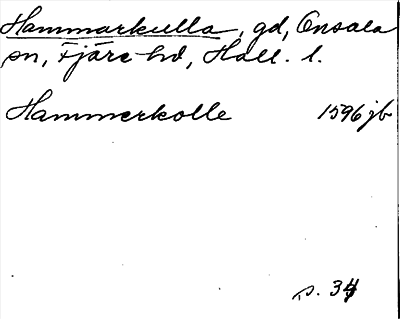 Hammarkulla, gd, Onsala
sn, Fjäre hd, Hall. l.
Hammerkolle 1596 jb
s. 34